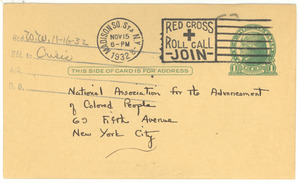 MADISON SQ. STA. N.Y.
NOV 15
6-PM
1932
RED CROSS
ROLL CALL
JOIN
11-16-32
Crisis
THIS SIDE OF CARD IS FOR ADDRESS
National Association for the Advancement
of Colored People
69 Fifth Avenue
New York City